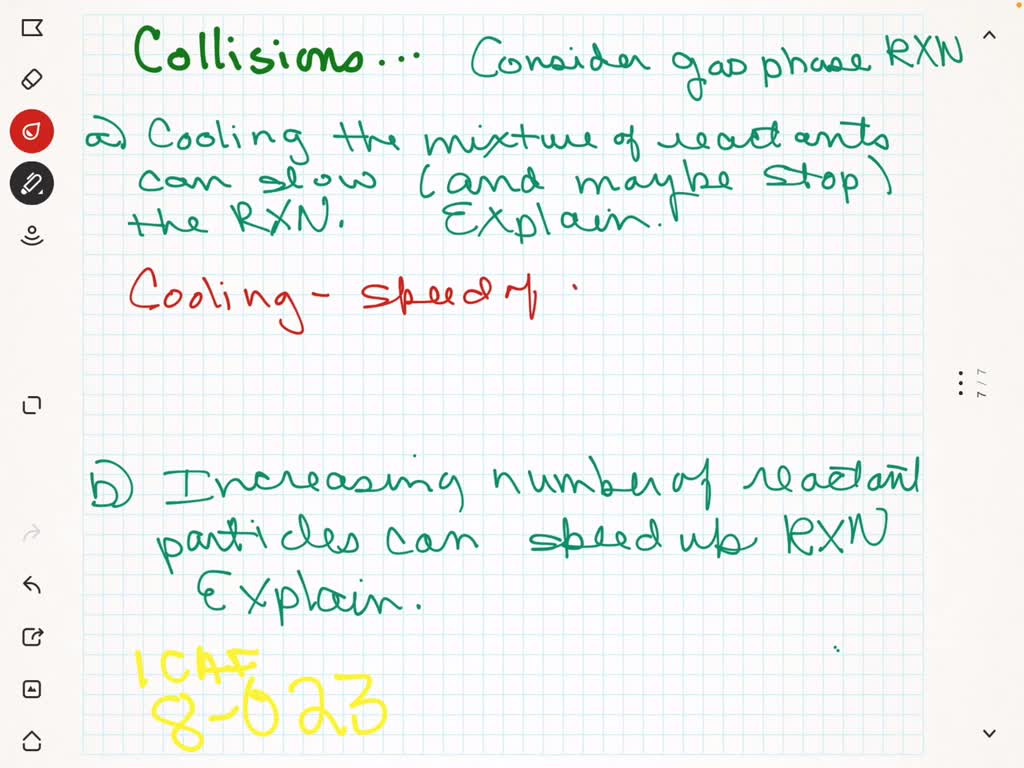 Collisions... Consider gas phase RXN
a) Cooling the mixture of reactants
can slow (and maybe stop)
the RXN. Explain.
Cooling - speed of
7/7
b) Increasing number of reactant
particles can speed up RXN
Explain.
ICAF
8-023